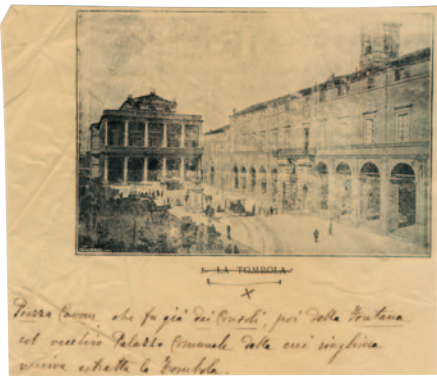 LA TOMBOLA
Piazza Cavour che fu già dei Consoli, poi della Fontana
col vecchio Palazzo Comunale dalla cui ringhiera
veniva estratta la Tombola.